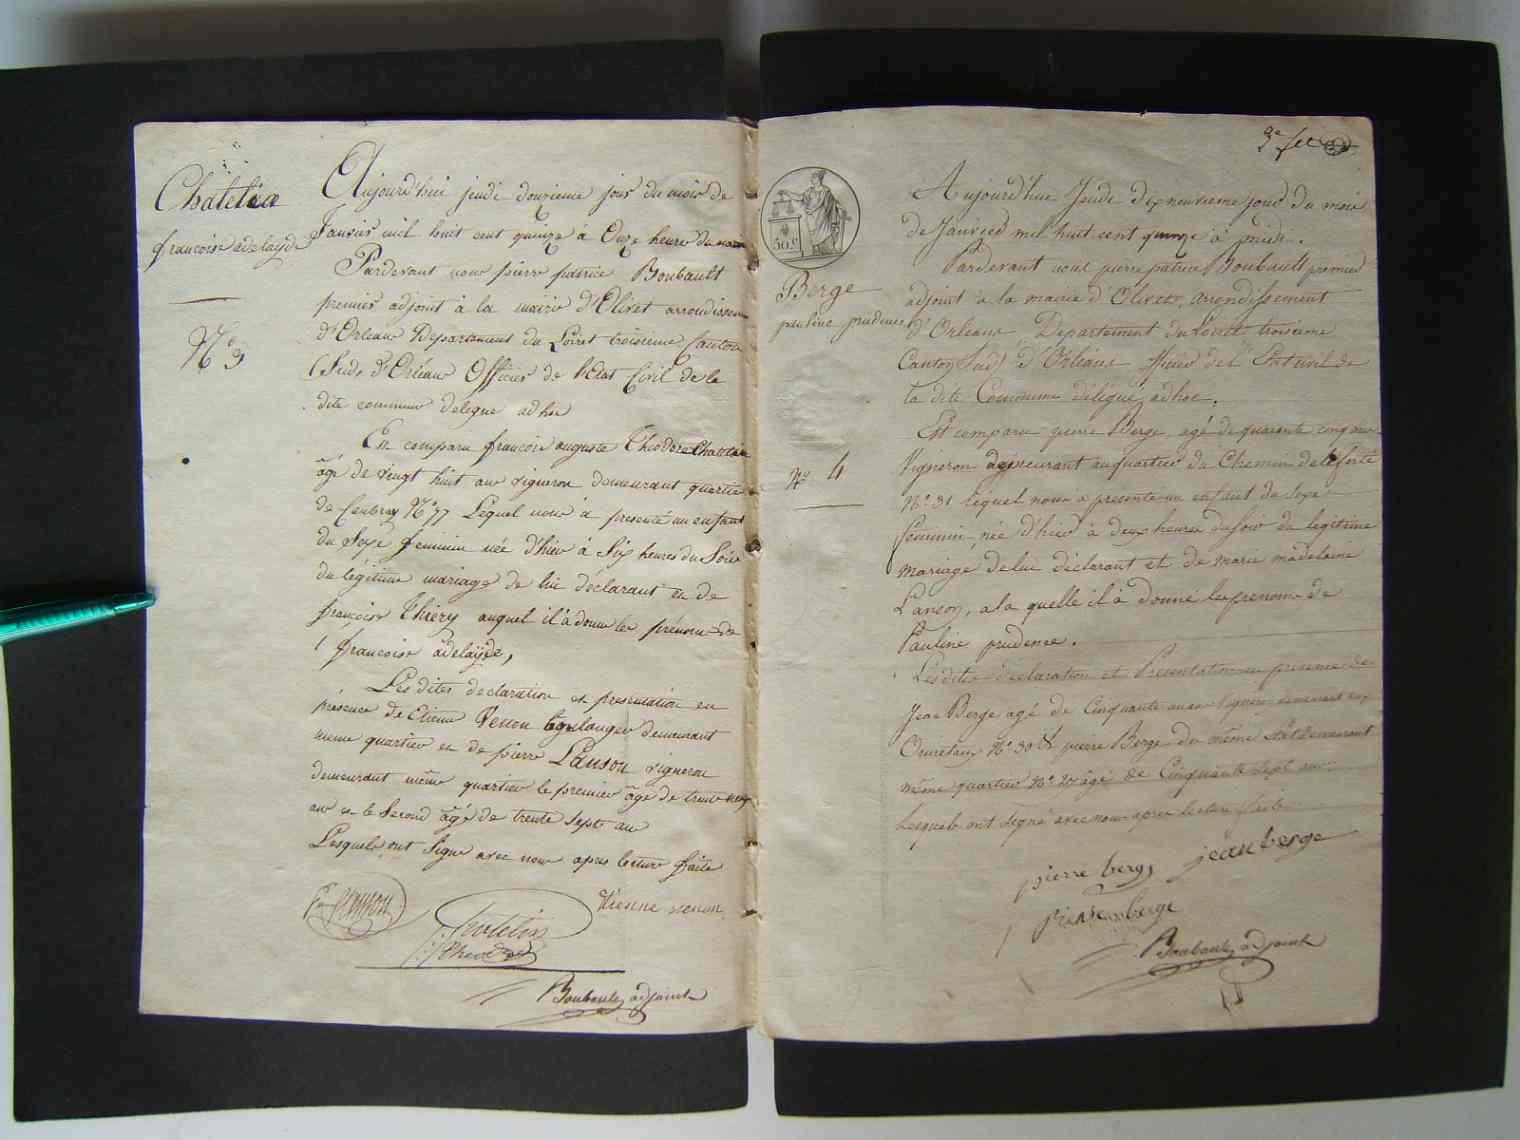 Chatelin
francoise adelayde
N° 3
Aujourd'hui jeudi douzieme jour du mois de
Janvier mil huit cent quinze à Onze heure du matin
Pardevant nous pierre patrice Boubault
premier adjoint à la mairie d'Olivet arrondissem
d'Orleans Departement du Loiret troisieme Canton
(Sud) d'Orléans Officier de l'Etat Civil de la
dite commune délégué adhoc
En comparu françois auguste Théodore Chatelain
âgé de vingt huit ans vigneron demeurant quartier
de Caubray N° 77 Lequel nous à presenté un enfant
du Sexe feminin née d'hier à Six heures du Soir
du légitime mariage de lui déclarant et de
françoise Thiery auquel il à donné les prénoms de
francoise adelayde,
Les dites declaration et presentation en
présence de Etienne Venon boulanger demeurant
meme quartier et de pierre Lanson vigneron
demeurant même quartier le premier âgé de trente neuf
ans et le Second âgé de trente Sept ans
Lesquels ont Signé avec nous apres lecture faite
etienne venon
Boubault adjoint
3e feuillet
50 c.
Berge
pauline prudence
N° 4
Aujourd'hui Jeudi dix neuvieme jour du mois
de Janvier mil huit cent quinze à midi.
Pardevant nous pierre patrice Boubault premier
adjoint à la mairie d'Olivet, arrondissement
d'Orleans, Departement du Loiret troisieme
Canton (Sud) d'Orleans officier de l'Etat civil de
la dite Commune délégué adhoc.
Est comparu pierre Berge, agé de quarante cinq ans
Vigneron demeurant au quartier du Chemin de la ferté
N° 31 lequel nous à presenté un enfant du Sexe
feminin, née d'hier à deux heures du soir du legitime
mariage de lui déclarant et de marie madelaine
Lanson, a la quelle il à donné les prenoms de
Pauline prudence.
Les dites declaration et Presentation en presence de
Jean Berge agé de Cinquante ans Vigneron demeurant aux
N° 30 et pierre Berge du même état demeurant
même quartier N° 20 âgé de Cinquante Sept ans.
Lesquels ont Signé avec nous apres lecture faite
pierre berge jean berge
pierre berge
Boubault adjoint